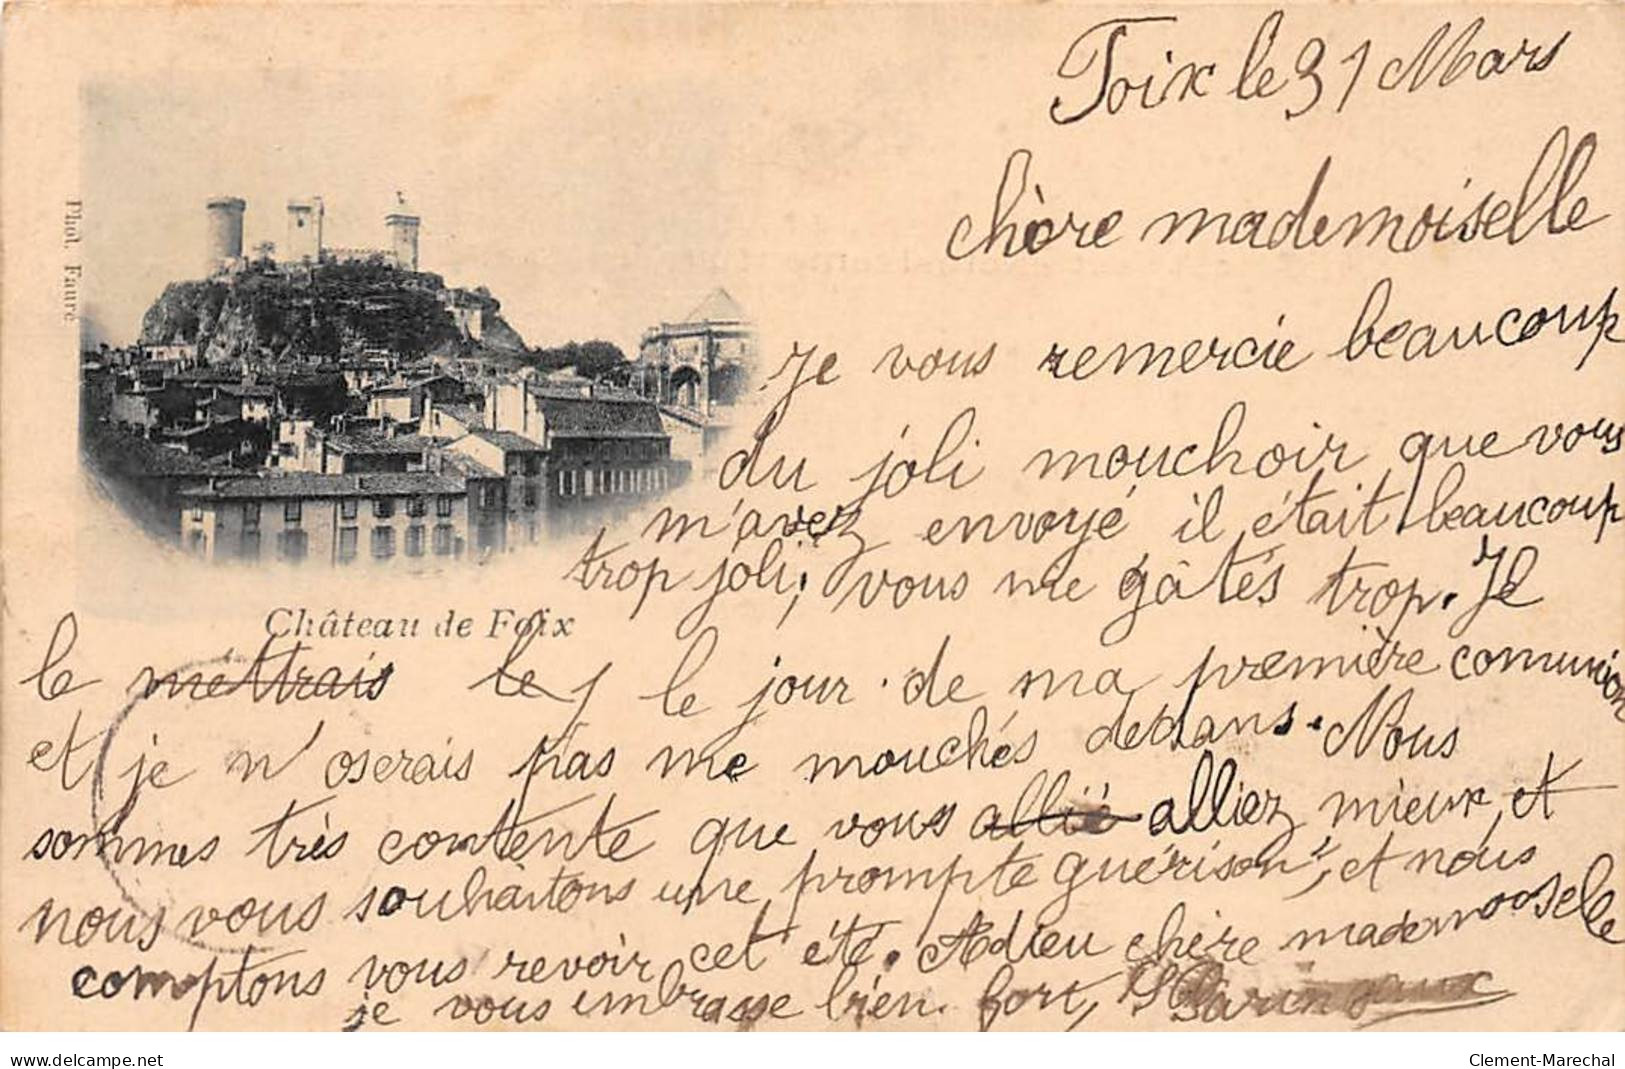 Foix le 31 Mars
chère mademoiselle
Phot. Faure
Je vous remercie beaucoup
du joli mouchoir que vous
m'avez envoyé il était beaucoup
trop joli, vous me gâtés trop. Je
Château de Foix
le mettrais le le jour de ma première comunion
et je n'oserais pas me mouchés dedans. Nous
sommes très contente que vous allié alliez mieux, et
nous vous souhaitons une prompte guérison, et nous
comptons vous revoir cet été. Adieu chère mademoiselle
je vous embrasse bien fort,
delcampe.net
Clement-Marechal